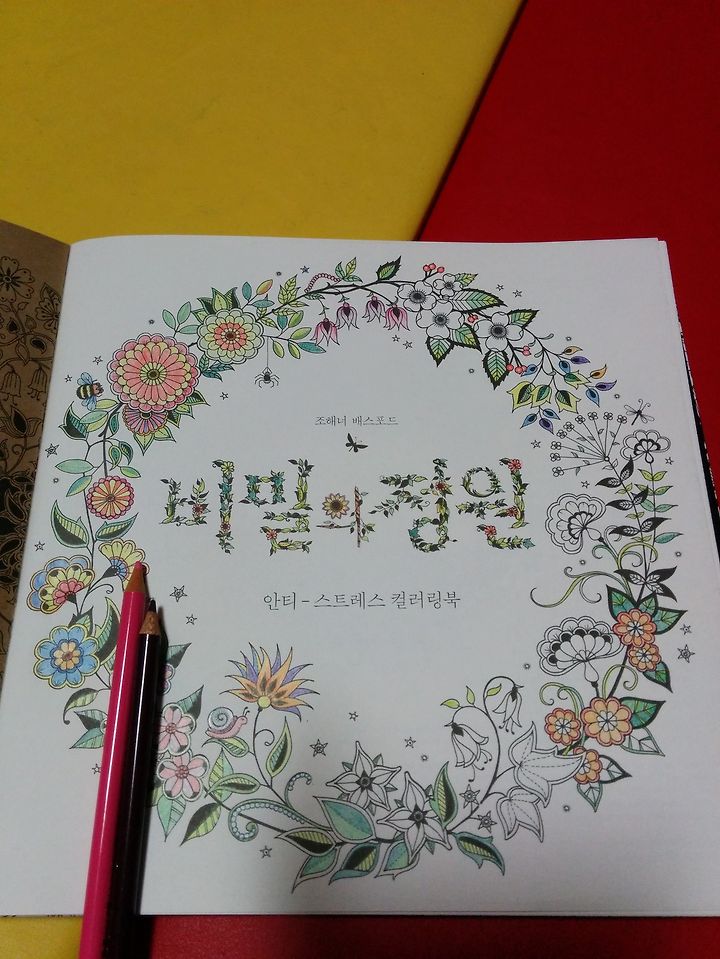 조해너 배스포드
비밀의 정원
안티-스트레스 컬러링북